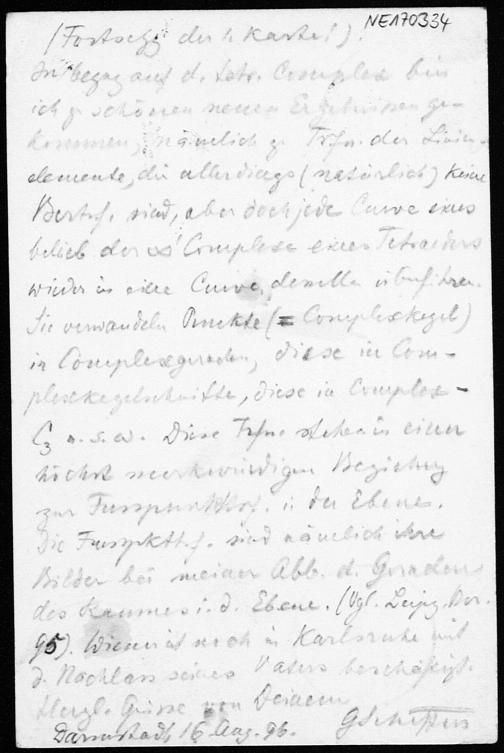 NE170334
(Fortsetzg der 1. Karte!).
In bezug auf d. tetr. Complex bin
ich zu schönen neuen Ergebnissen ge-
kommen, nämlich zu Trfn. der Linien-
elemente, die allerdings (natürlich) keine
Bertrf. sind, aber doch jede Curve eines
belieb der ∞¹ Complexe eines Tetraeders
wieder in eine Curve, desselben überführen.
Sie verwandeln Punkte (= Complexkegel)
in Complexgeraden, diese in Com-
plexkegelschnitte, diese in Complex-
C₃ u. s. w. Diese Trfn. stehen in einer
höchst merkwürdigen Beziehung
zur Fusspunkttrf. in der Ebene.
Die Fusspkttrf. sind nämlich ihre
Bilder bei meiner Abb. d. Geraden
des Raumes i. d. Ebene. (Vgl. Leipz. Ber.
95). Wiener ist noch in Karlsruhe mit
d. Nachlass seines Vaters beschäftigt.
Herzl. Grüsse von Deinem
Darmstadt, 16. Aug. 96. GScheffers